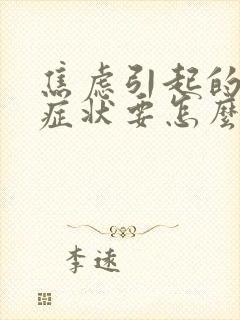 焦虑引起的
症状要怎麼
李速